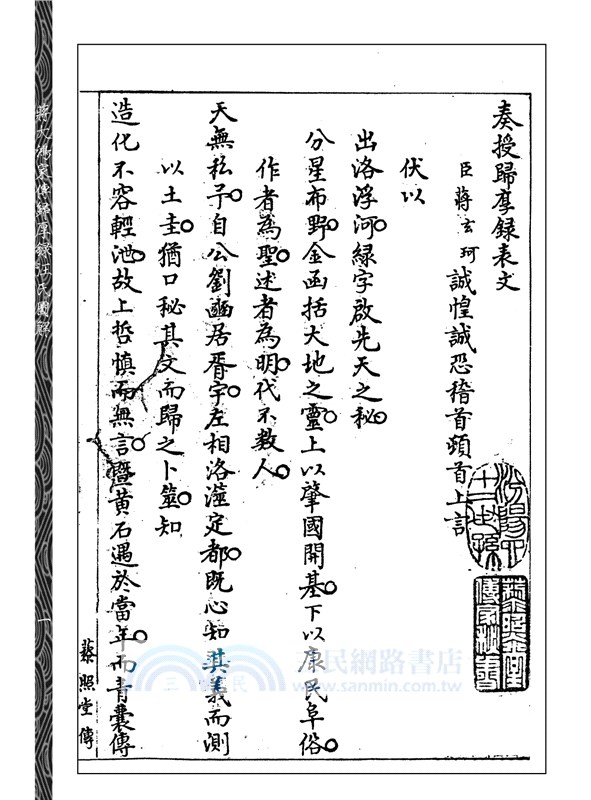 奏授歸厚錄表文
臣蔣玄珂誠惶誠恐稽首頓首上言
伏以
出洛浮河綠字啟先天之秘
分星布野金函括大地之靈上以肇國開基下以康民阜俗
作者為聖述者為明代不數人
天無私予自公劉豳居胥宇左相洛瀍定都既心知其義而測
以土圭猶口秘其文而歸之卜筮知
造化不容輕泄故上哲慎而無言暨黃石遇於當年而青囊傳
蔡照堂傳
一
三民網路書店
www.sanmin.com.tw
三民